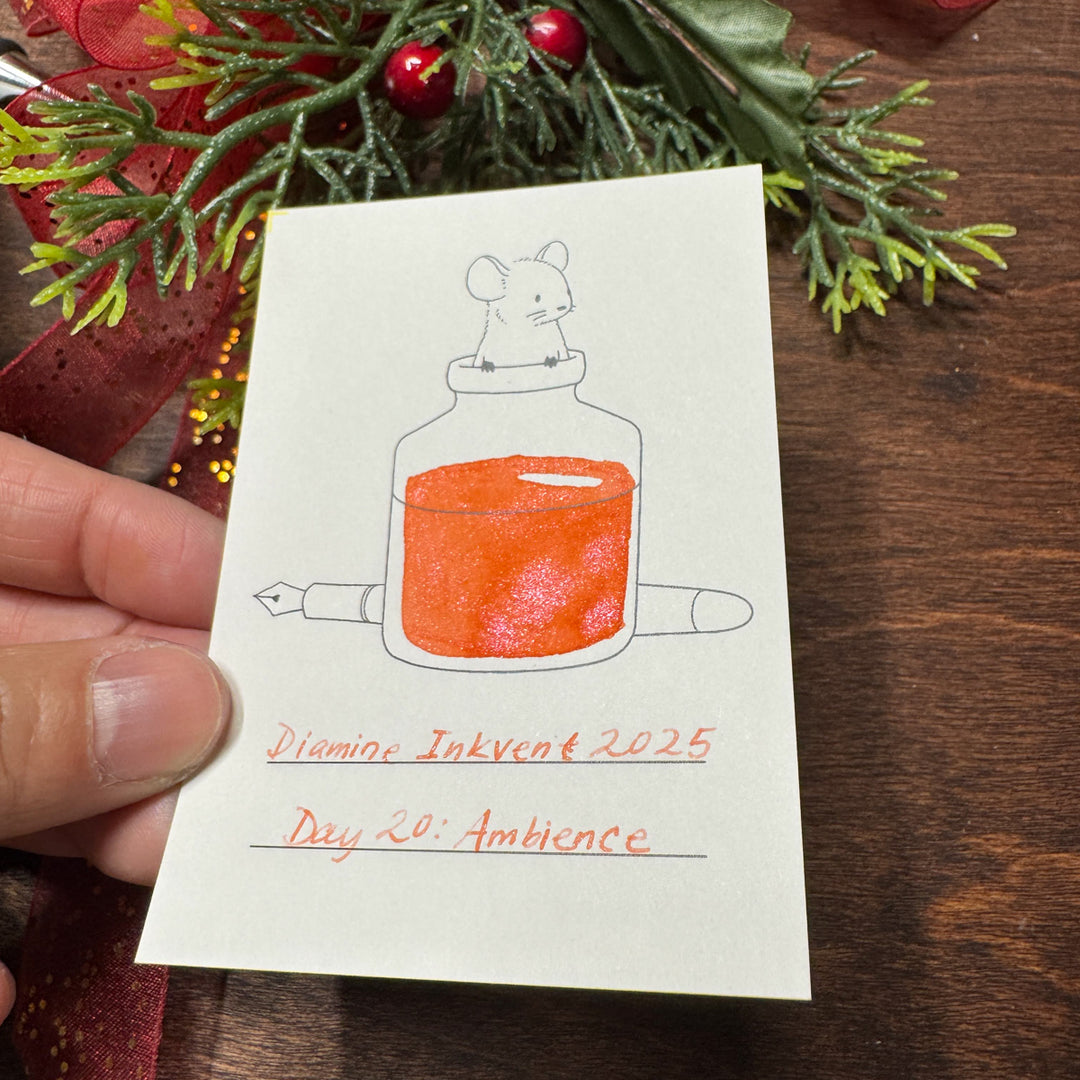 Diamine Inkvent 2025
Day 20: Ambience